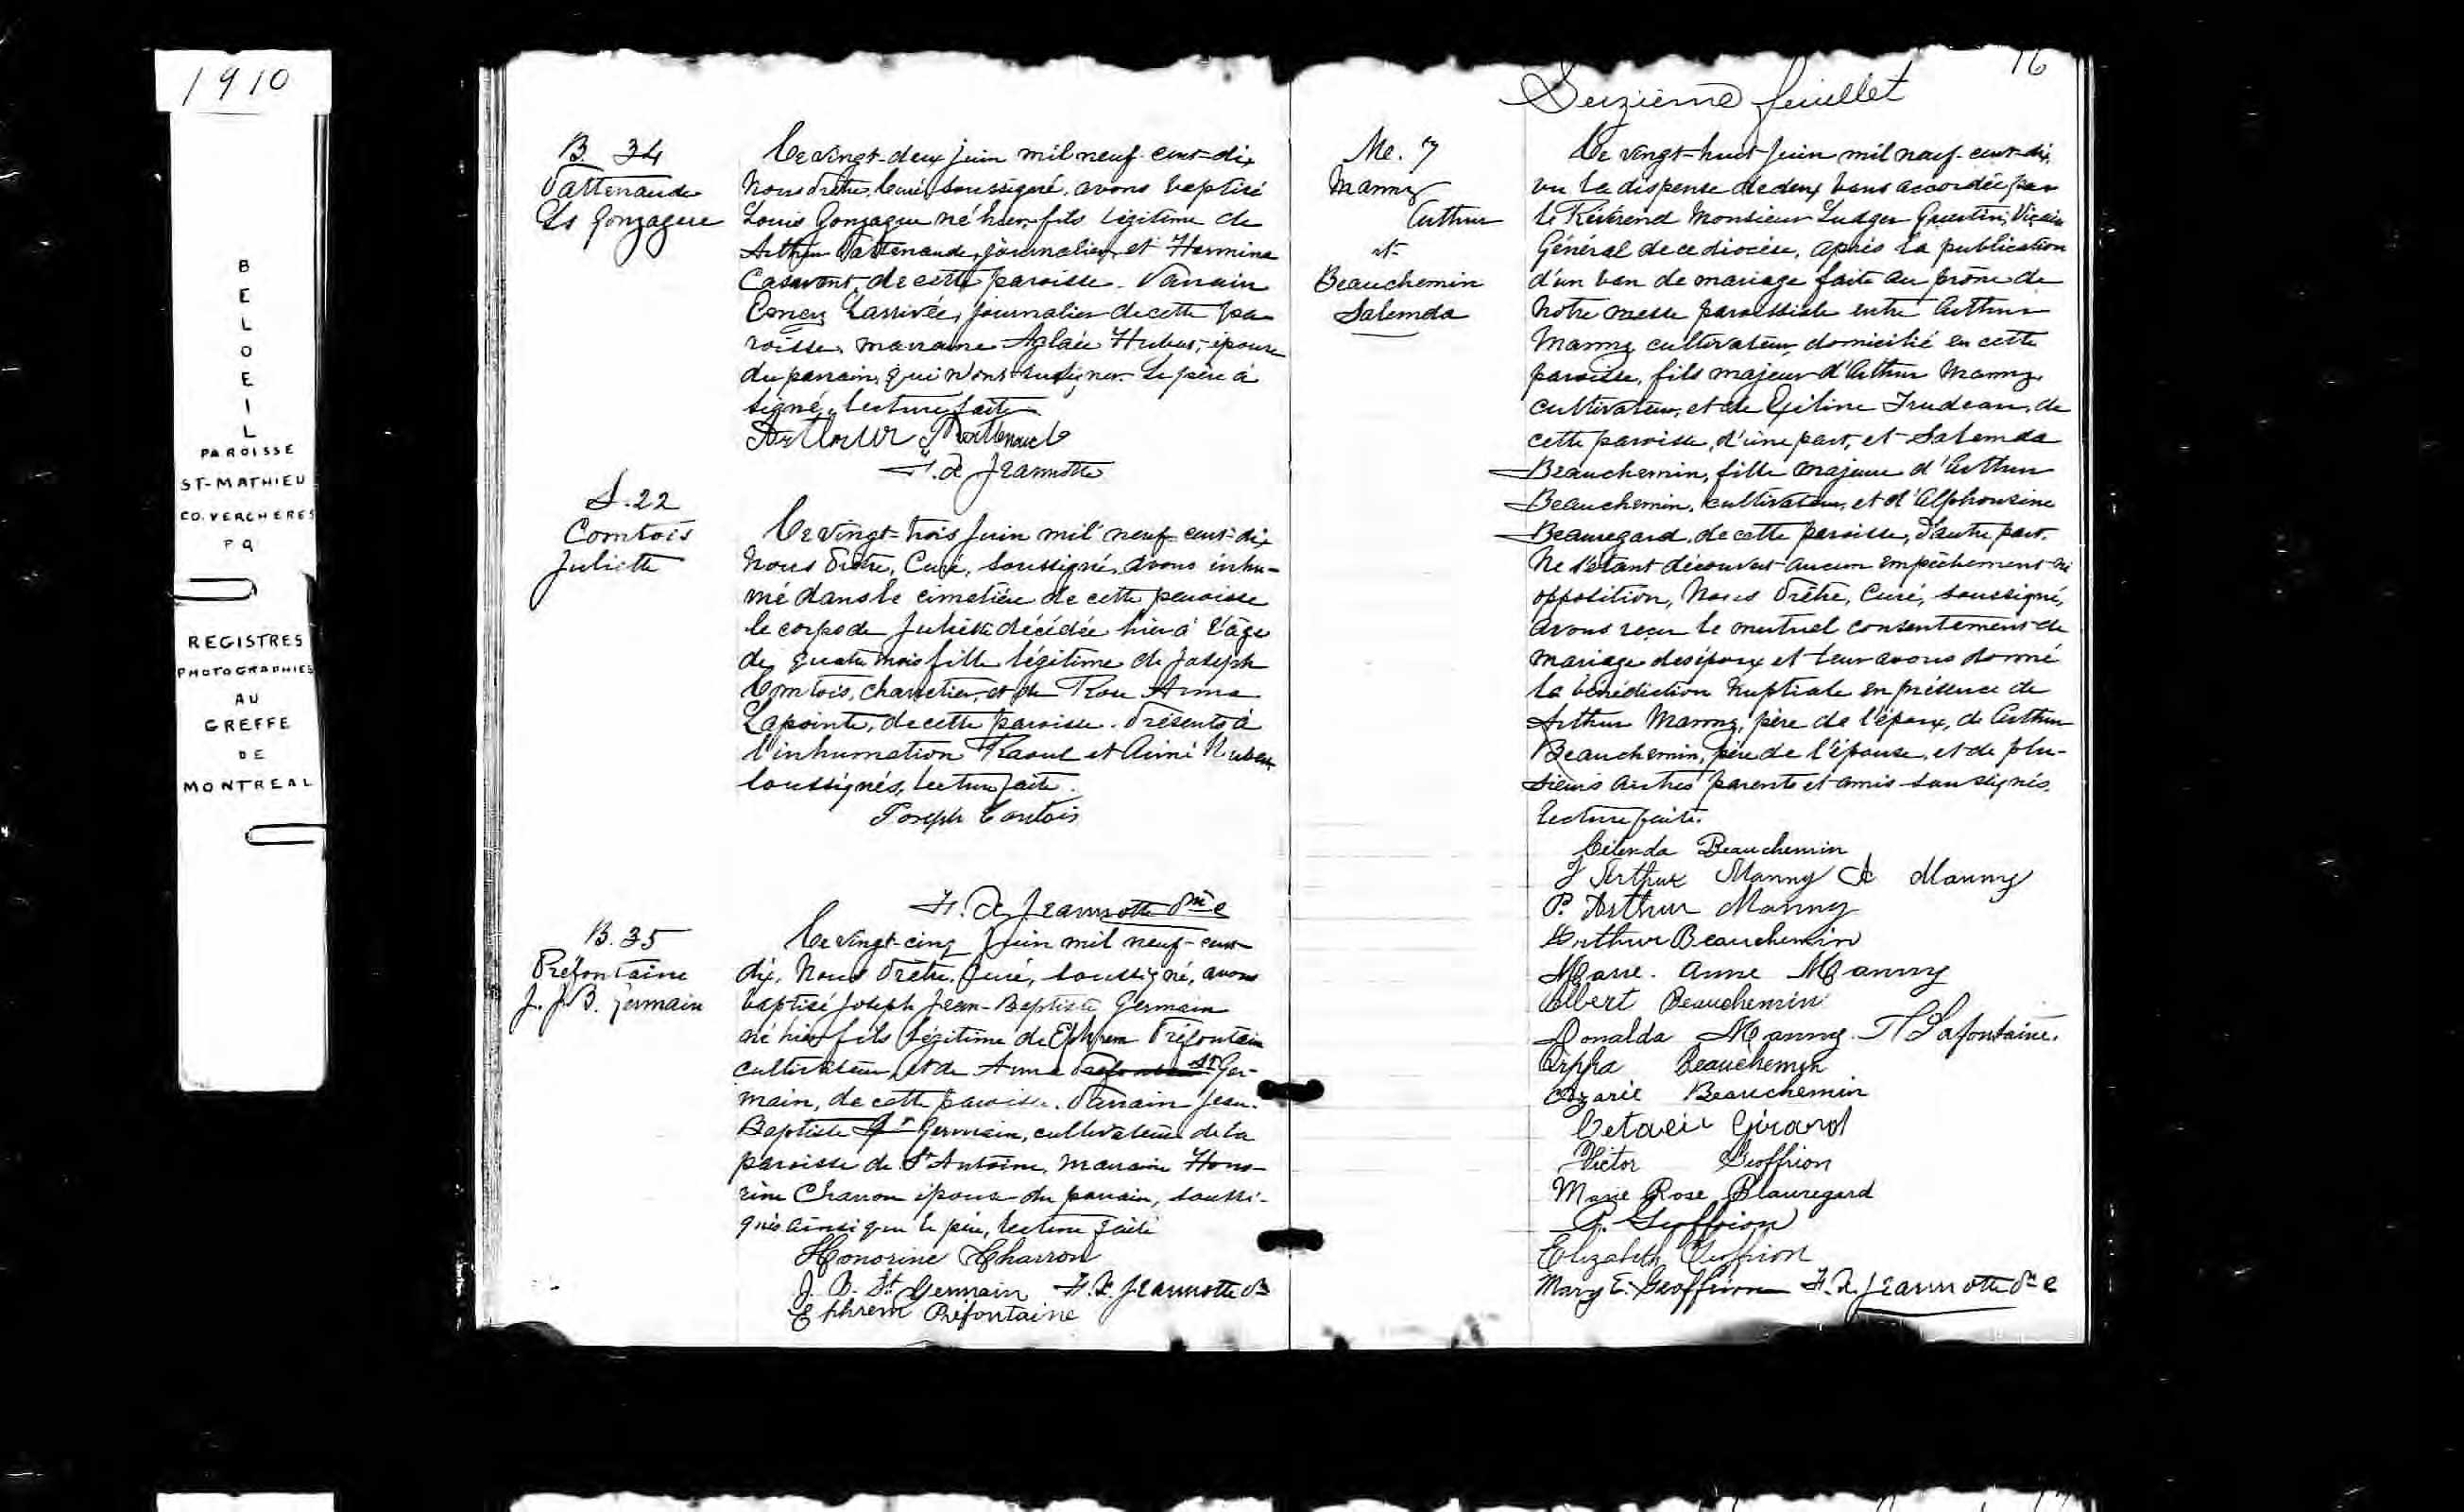 1910
BELOEIL
PAROISSE
ST-MATHIEU
CO. VERCHERES
P Q
REGISTRES
PHOTOGRAPHIES
AU
GREFFE
DE
MONTREAL
B. 34
Pattenaude
Ls Gonzague
Ce vingt-deux juin mil neuf cent-dix
Nous Prêtre, Curé, soussigné, avons baptisé
Louis Gonzague né hier, fils légitime de
Arthur Pattenaude, journalier, et Hermina
Casavant, de cette paroisse. Parrain
Larrivée, journalier de cette pa-
roisse, marraine Aglaée Hubert, épouse
du parrain, qui n'ont su signer. Le père a
signé, lecture faite
Arthur Pattenaude
F. X Jeannotte
S. 22
Comtois
Juliette
Ce vingt-trois juin mil neuf cent-dix
Nous Prêtre, Curé, soussigné, avons inhu-
mé dans le cimetière de cette paroisse
le corps de Juliette décédée hier à l'âge
de quatre mois fille légitime de Joseph
Comtois, charretier, et de Rose Anna
Lapointe, de cette paroisse. Présents à
l'inhumation Raoul et Aimé Hubert
soussignés, lecture faite.
Joseph Contois
F. X Jeannotte Ptre C
B. 35
Préfontaine
J. J. B. Germain
Ce vingt-cinq juin mil neuf-cent-
dix, Nous Prêtre, Curé, soussigné, avons
baptisé Joseph Jean-Baptiste Germain
né hier fils légitime de Ephrem Préfontaine
cultivateur, et de Anna St Ger-
main, de cette paroisse. Parrain Jean-
Baptiste St Germain, cultivateur de la
paroisse de St Antoine, marraine Hono-
rine Charron épouse du parrain, soussi-
gnés ainsi que le père, lecture faite
Honorine Charron
J. B. St. Germain F. X. Jeannotte Ptre
Ephrem Préfontaine
16
Seizième feuillet
M. 7
Manny
Arthur
et
Beauchemin
Salemda
Ce vingt-huit juin mil neuf-cent-dix,
vu la dispense de deux bans accordée par
le Révérend Monsieur Ludger Guertin, Vicaire
Général de ce diocèse, après la publication
d'un ban de mariage faite au prône de
notre messe paroissiale entre Arthur
Manny cultivateur, domicilié en cette
paroisse, fils majeur d'Arthur Manny
cultivateur, et de Exilina Trudeau, de
cette paroisse, d'une part, et Salemda
Beauchemin, fille majeure d'Arthur
Beauchemin, cultivateur, et d'Alphonsine
Beauregard, de cette paroisse, d'autre part.
Ne s'étant découvert aucun empêchement ni
opposition, Nous Prêtre, Curé, soussigné,
avons reçu le mutuel consentement de
mariage des époux et leur avons donné
la bénédiction nuptiale en présence de
Arthur Manny, père de l'époux, de Arthur
Beauchemin, père de l'épouse, et de plu-
sieurs autres parents et amis soussignés.
lecture faite.
Célenda Beauchemin
J Arthur Manny A Manny
P. Arthur Manny
Arthur Beauchemin
Marie. Anne Manny
Albert Beauchemin
Donalda Manny. Lafontaine.
Orpha Beauchemin
Azarie Beauchemin
Girard
Victor Geoffrion
Marie Rose Beauregard
P. Geoffrion
Elizabeth Geoffrion
Mary E. Geoffrion F. X. Jeannotte Ptre C